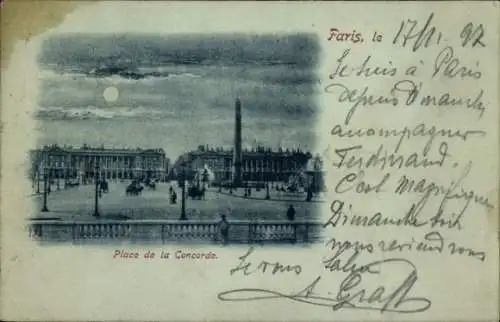 Paris, le 17/1. 97
Je suis à Paris
depuis Dimanche,
accompagner
Ferdinand.
C'est magnifique
Dimanche soir
nous reviendrons
Je vous Salue
A. Graff
Place de la Concorde.